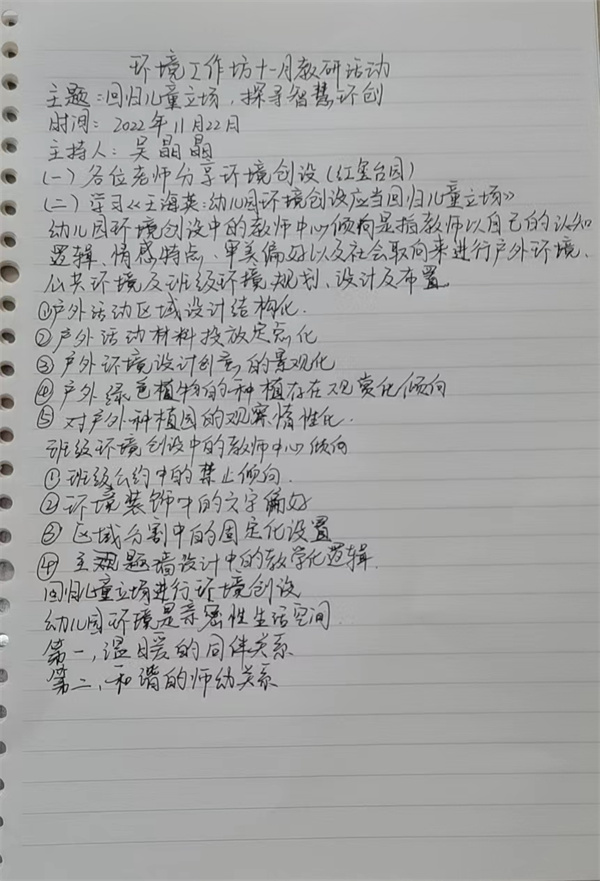 环境工作坊十一月教研活动
主题：回归儿童立场，探寻智慧环创
时间：2022年11月22日
主持人：吴晶晶
（一）各位老师分享环境创设（红星台园）
（二）学习《王海英：幼儿园环境创设应当回归儿童立场》
幼儿园环境创设中的教师中心倾向是指教师以自己的认知
逻辑、情感特点、审美偏好以及社会取向来进行户外环境、
公共环境及班级环境规划、设计及布置
①户外活动区域设计结构化.
②户外活动材料投放定点化
③户外环境设计创意的景观化
④户外绿色植物的种植存在观赏化倾向
⑤对户外种植园的观察惰性化.
班级环境创设中的教师中心倾向
①班级公约中的禁止倾向.
②环境装饰中的文字偏好
③区域分割中的固定化设置
④主题墙设计中的教学化逻辑.
回归儿童立场进行环境创设
幼儿园环境是亲密性生活空间.
第一，温暖的同伴关系
第二、和谐的师幼关系